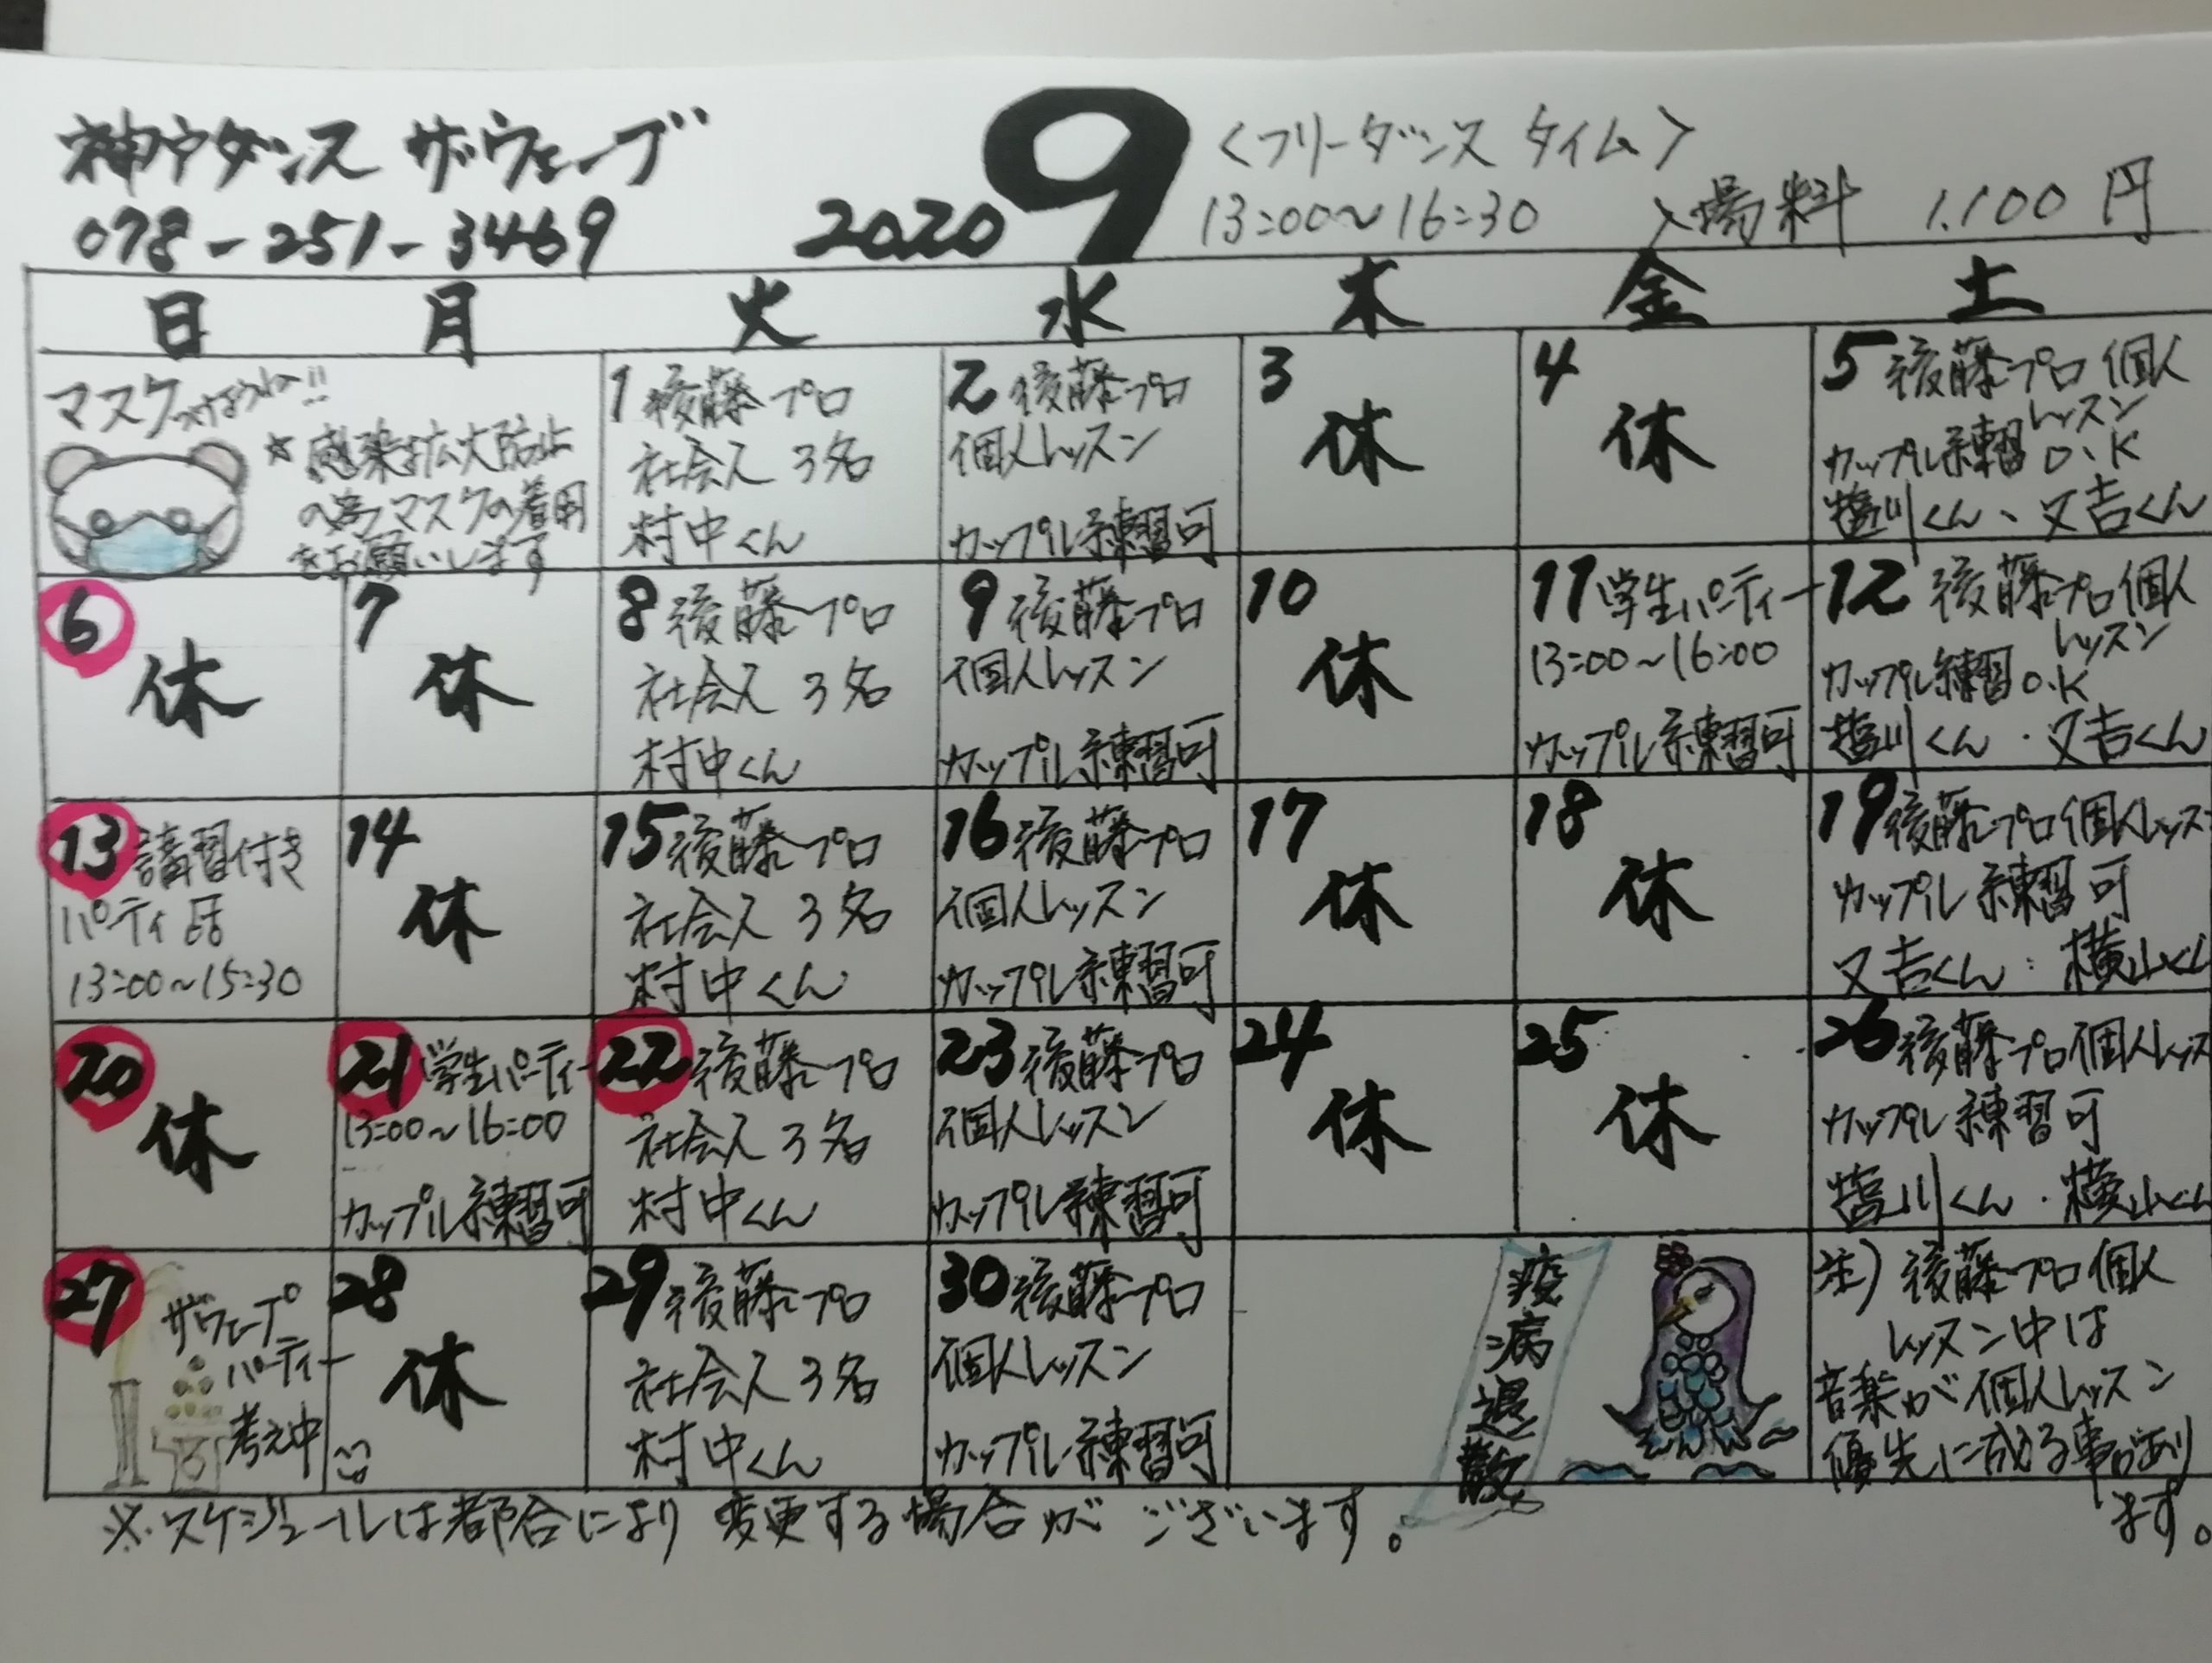 神戸ダンス ザウェーブ
078-251-3469
2020 9
<フリーダンス タイム>
13:00~16:30 入場料 1,100円
日 月 火 水 木 金 土
マスクつけようね!!
*感染拡大防止
の為マスクの着用
をお願いします
1 後藤プロ
社会人 3名
村中くん
2 後藤プロ
個人レッスン
カップル練習可
3
休
4
休
5 後藤プロ個人
レッスン
カップル練習O.K
塩川くん、又吉くん
6
休
7
休
8 後藤プロ
社会人 3名
村中くん
9 後藤プロ
個人レッスン
カップル練習可
10
休
11 学生パーティー
13:00~16:00
カップル練習可
12 後藤プロ個人
レッスン
カップル練習O.K
塩川くん・又吉くん
13 講習付き
パーティ
13:00~15:30
14
休
15 後藤プロ
社会人 3名
村中くん
16 後藤プロ
個人レッスン
カップル練習可
17
休
18
休
19 後藤プロ個人レッス
カップル練習可
又吉くん・横山くん
20
休
21 学生パーティー
13:00~16:00
カップル練習可
22 後藤プロ
社会人 3名
村中くん
23 後藤プロ
個人レッスン
カップル練習可
24
休
25
休
26 後藤プロ個人レッス
カップル練習可
塩川くん・横山くん
27 ザウェーブ
パーティー
考え中
28
休
29 後藤プロ
社会人 3名
村中くん
30 後藤プロ
個人レッスン
カップル練習可
疫病退散
注)後藤プロ個人
レッスン中は
音楽が個人レッスン
優先に成る事があり
ます。
※スケジュールは都合により変更する場合がございます。